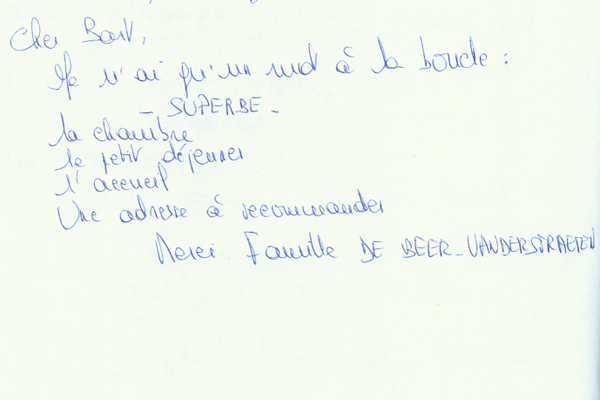 Cher Bart,
Je n'ai qu'un mot à la bouche :
- SUPERBE -
la chambre
le petit déjeuner
l'accueil
Une adresse à recommander
Merci Famille DE BEER-VANDERSTRAETEN